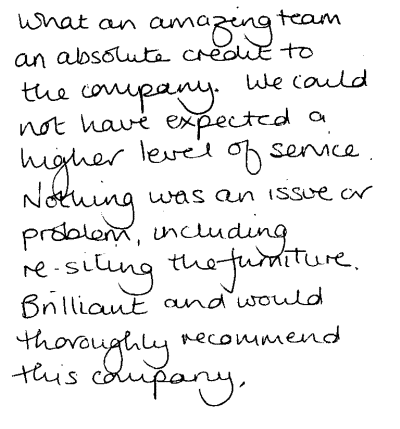 What an amazing team
an absolute credit to
the company. We could
not have expected a
higher level of service.
Nothing was an issue or
problem, including
re-siting the furniture.
Brilliant and would
thoroughly recommend
this company.